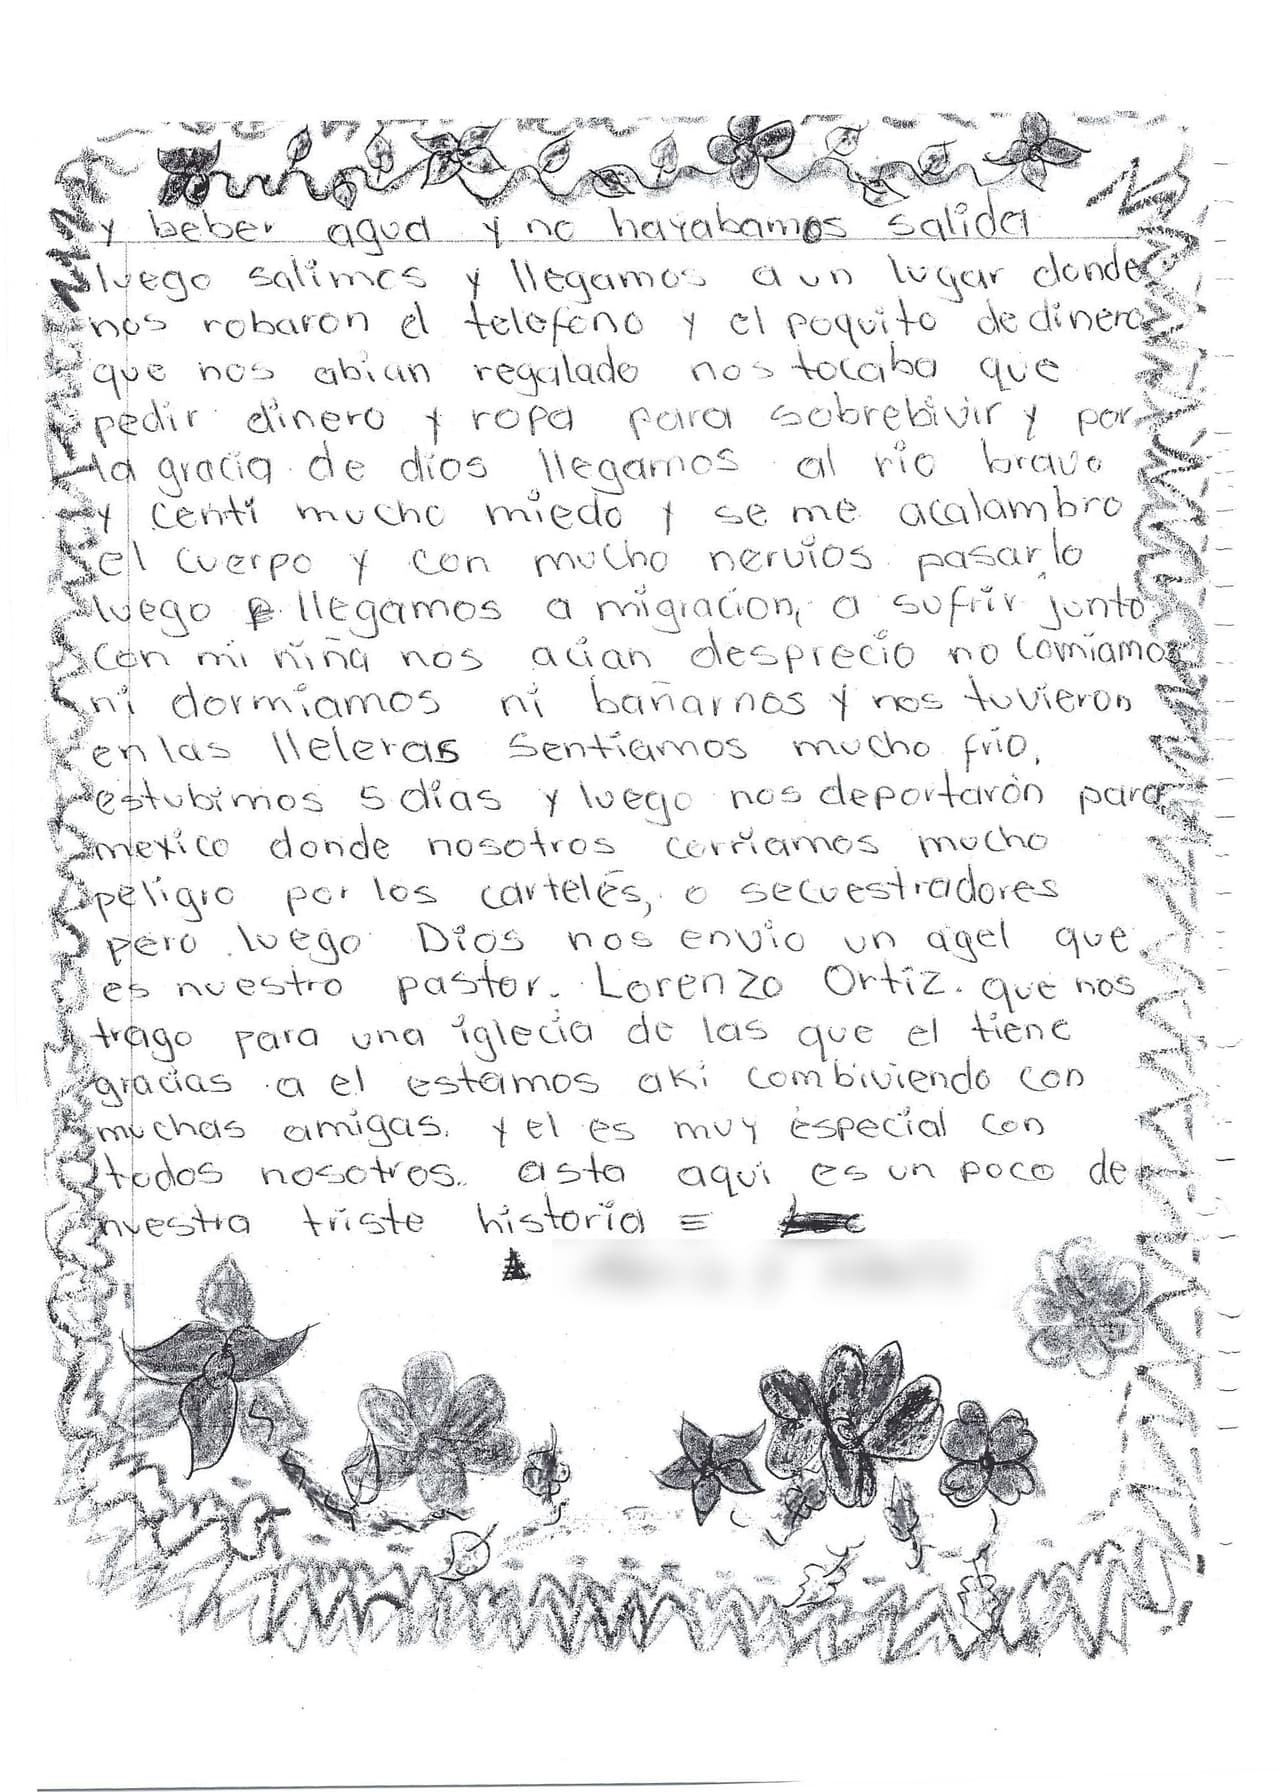 y beber agua y no hayabamos salida
luego salimos y llegamos a un lugar donde
nos robaron el telefono y el poquito de dinero
que nos abian regalado nos tocaba que
pedir dinero y ropa para sobrebivir y por
la gracia de dios llegamos al rio bravo
y centi mucho miedo y se me acalambro
el cuerpo y con mucho nervios pasarlo
luego llegamos a migracion, a sufrir junto
con mi niña nos acian desprecio no comiamos
ni dormiamos ni bañarnos y nos tuvieron
en las lleleras sentiamos mucho frio,
estubimos 5 dias y luego nos deportarón para
mexico donde nosotros corriamos mucho
peligro por los cartelés, o secuestradores
pero luego Dios nos envio un agel que
es nuestro pastor. Lorenzo Ortiz. que nos
trago para una iglecia de las que el tiene
gracias a el estamos aki combiviendo con
muchas amigas. y el es muy especial con
todos nosotros.. asta aqui es un poco de
nuestra triste historia =